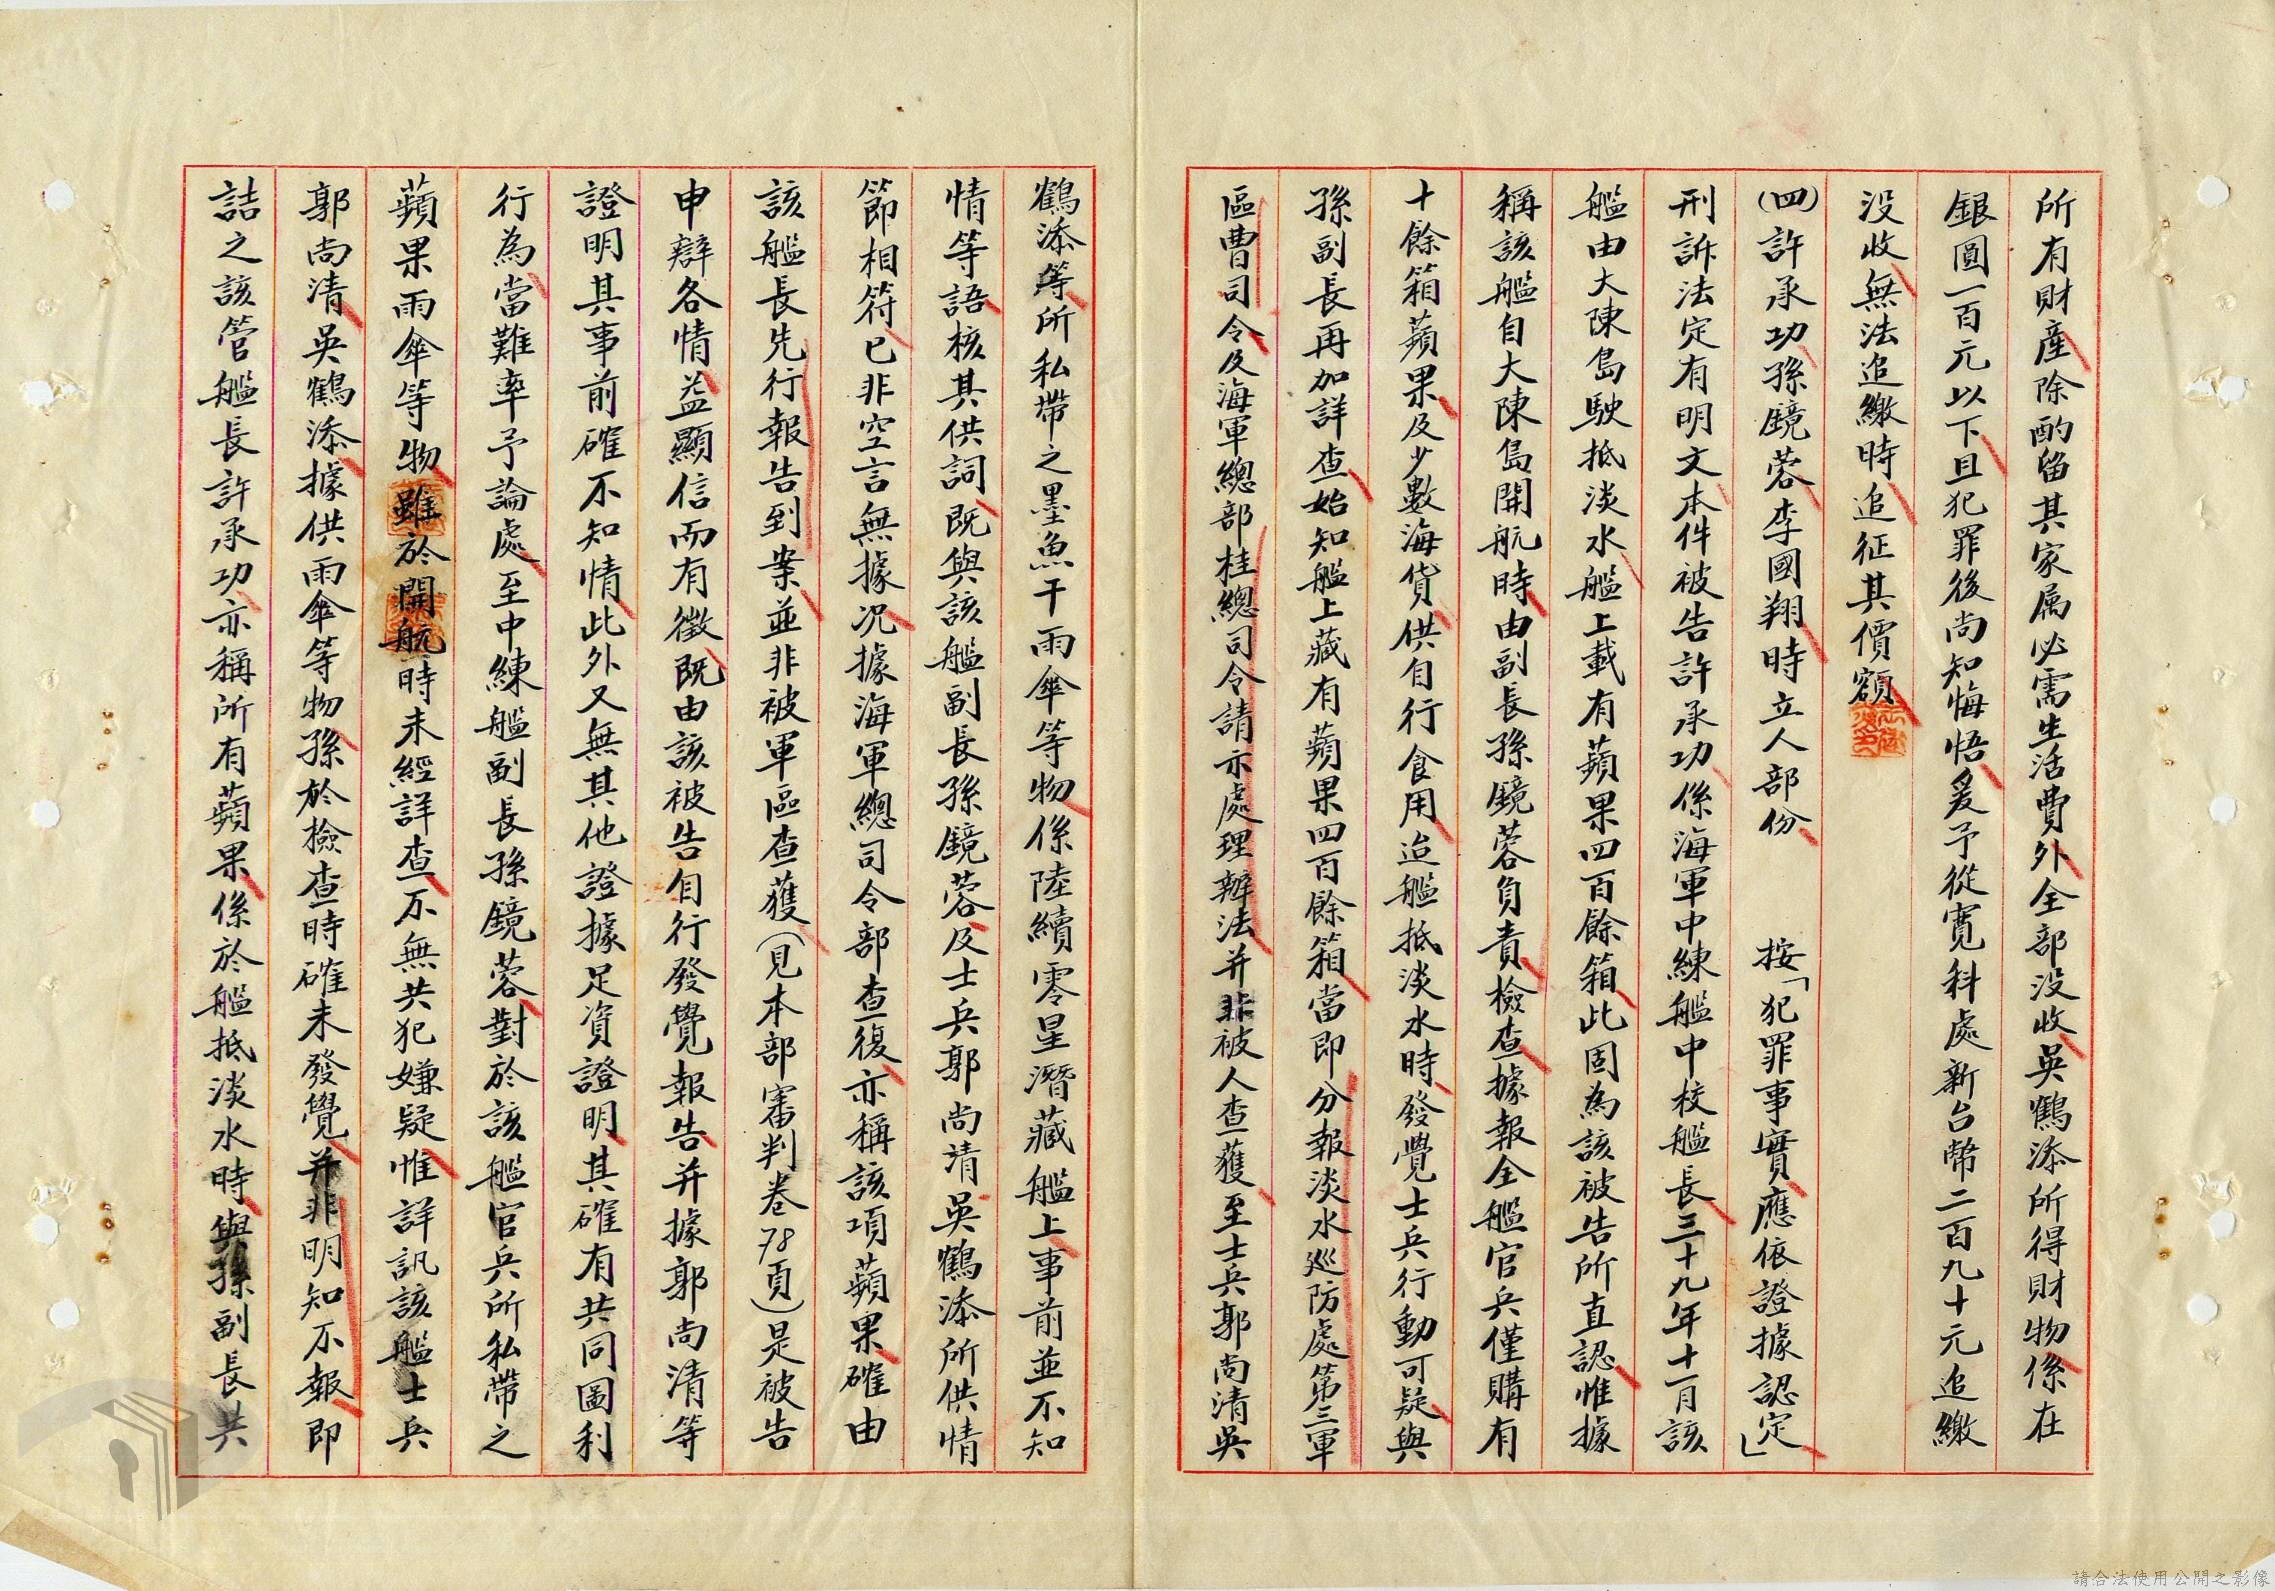 所有財產除酌留其家属必需生活費外全部没收吳鶴添所得財物係在
銀圓一百元以下且犯罪後尚知悔悟爰予從寬科處新台幣二百九十元追繳
没收無法追繳時追征其價額
(四)許承功孫鏡蓉李國翔時立人部份　按「犯罪事實應依證據認定」
刑訴法定有明文本件被告許承功係海軍中練艦中校艦長三十九年十一月該
艦由大陳島駛抵淡水艦上載有蘋果四百餘箱此固為該被告所直認惟據
稱該艦自大陳島開航時由副長孫鏡蓉負責檢查據報全艦官兵僅購有
十餘箱蘋果及少數海貨供自行食用迨艦抵淡水時發覺士兵行動可疑與
孫副長再加詳查始知艦上藏有蘋果四百餘箱當即分報淡水巡防處第三軍
區曹司令及海軍總部桂總司令請示處理辦法并非被人查獲至士兵郭尚清吳
鶴添等所私帶之墨魚干雨傘等物係陸續零星潛藏艦上事前並不知
情等語核其供詞既與該艦副長孫鏡蓉及士兵郭尚清吳鶴添所供情
節相符已非空言無據况據海軍總司令部查復亦稱該項蘋果確由
該艦長先行報告到案並非被軍區查獲(見本部審判卷78頁)是被告
申辯各情益顯信而有徵既由該被告自行發覺報告并據郭尚清等
證明其事前確不知情此外又無其他證據足資證明其確有共同圖利
行為當難率予論處至中練艦副長孫鏡蓉對於該艦官兵所私帶之
蘋果雨傘等物雖於開航時未經詳查不無共犯嫌疑惟詳訊該艦士兵
郭尚清吳鶴添據供雨傘等物孫於檢查時確未發覺并非明知不報即
詰之該管艦長許承功亦稱所有蘋果係於艦抵淡水時與孫副長共
請合法使用公開之影像